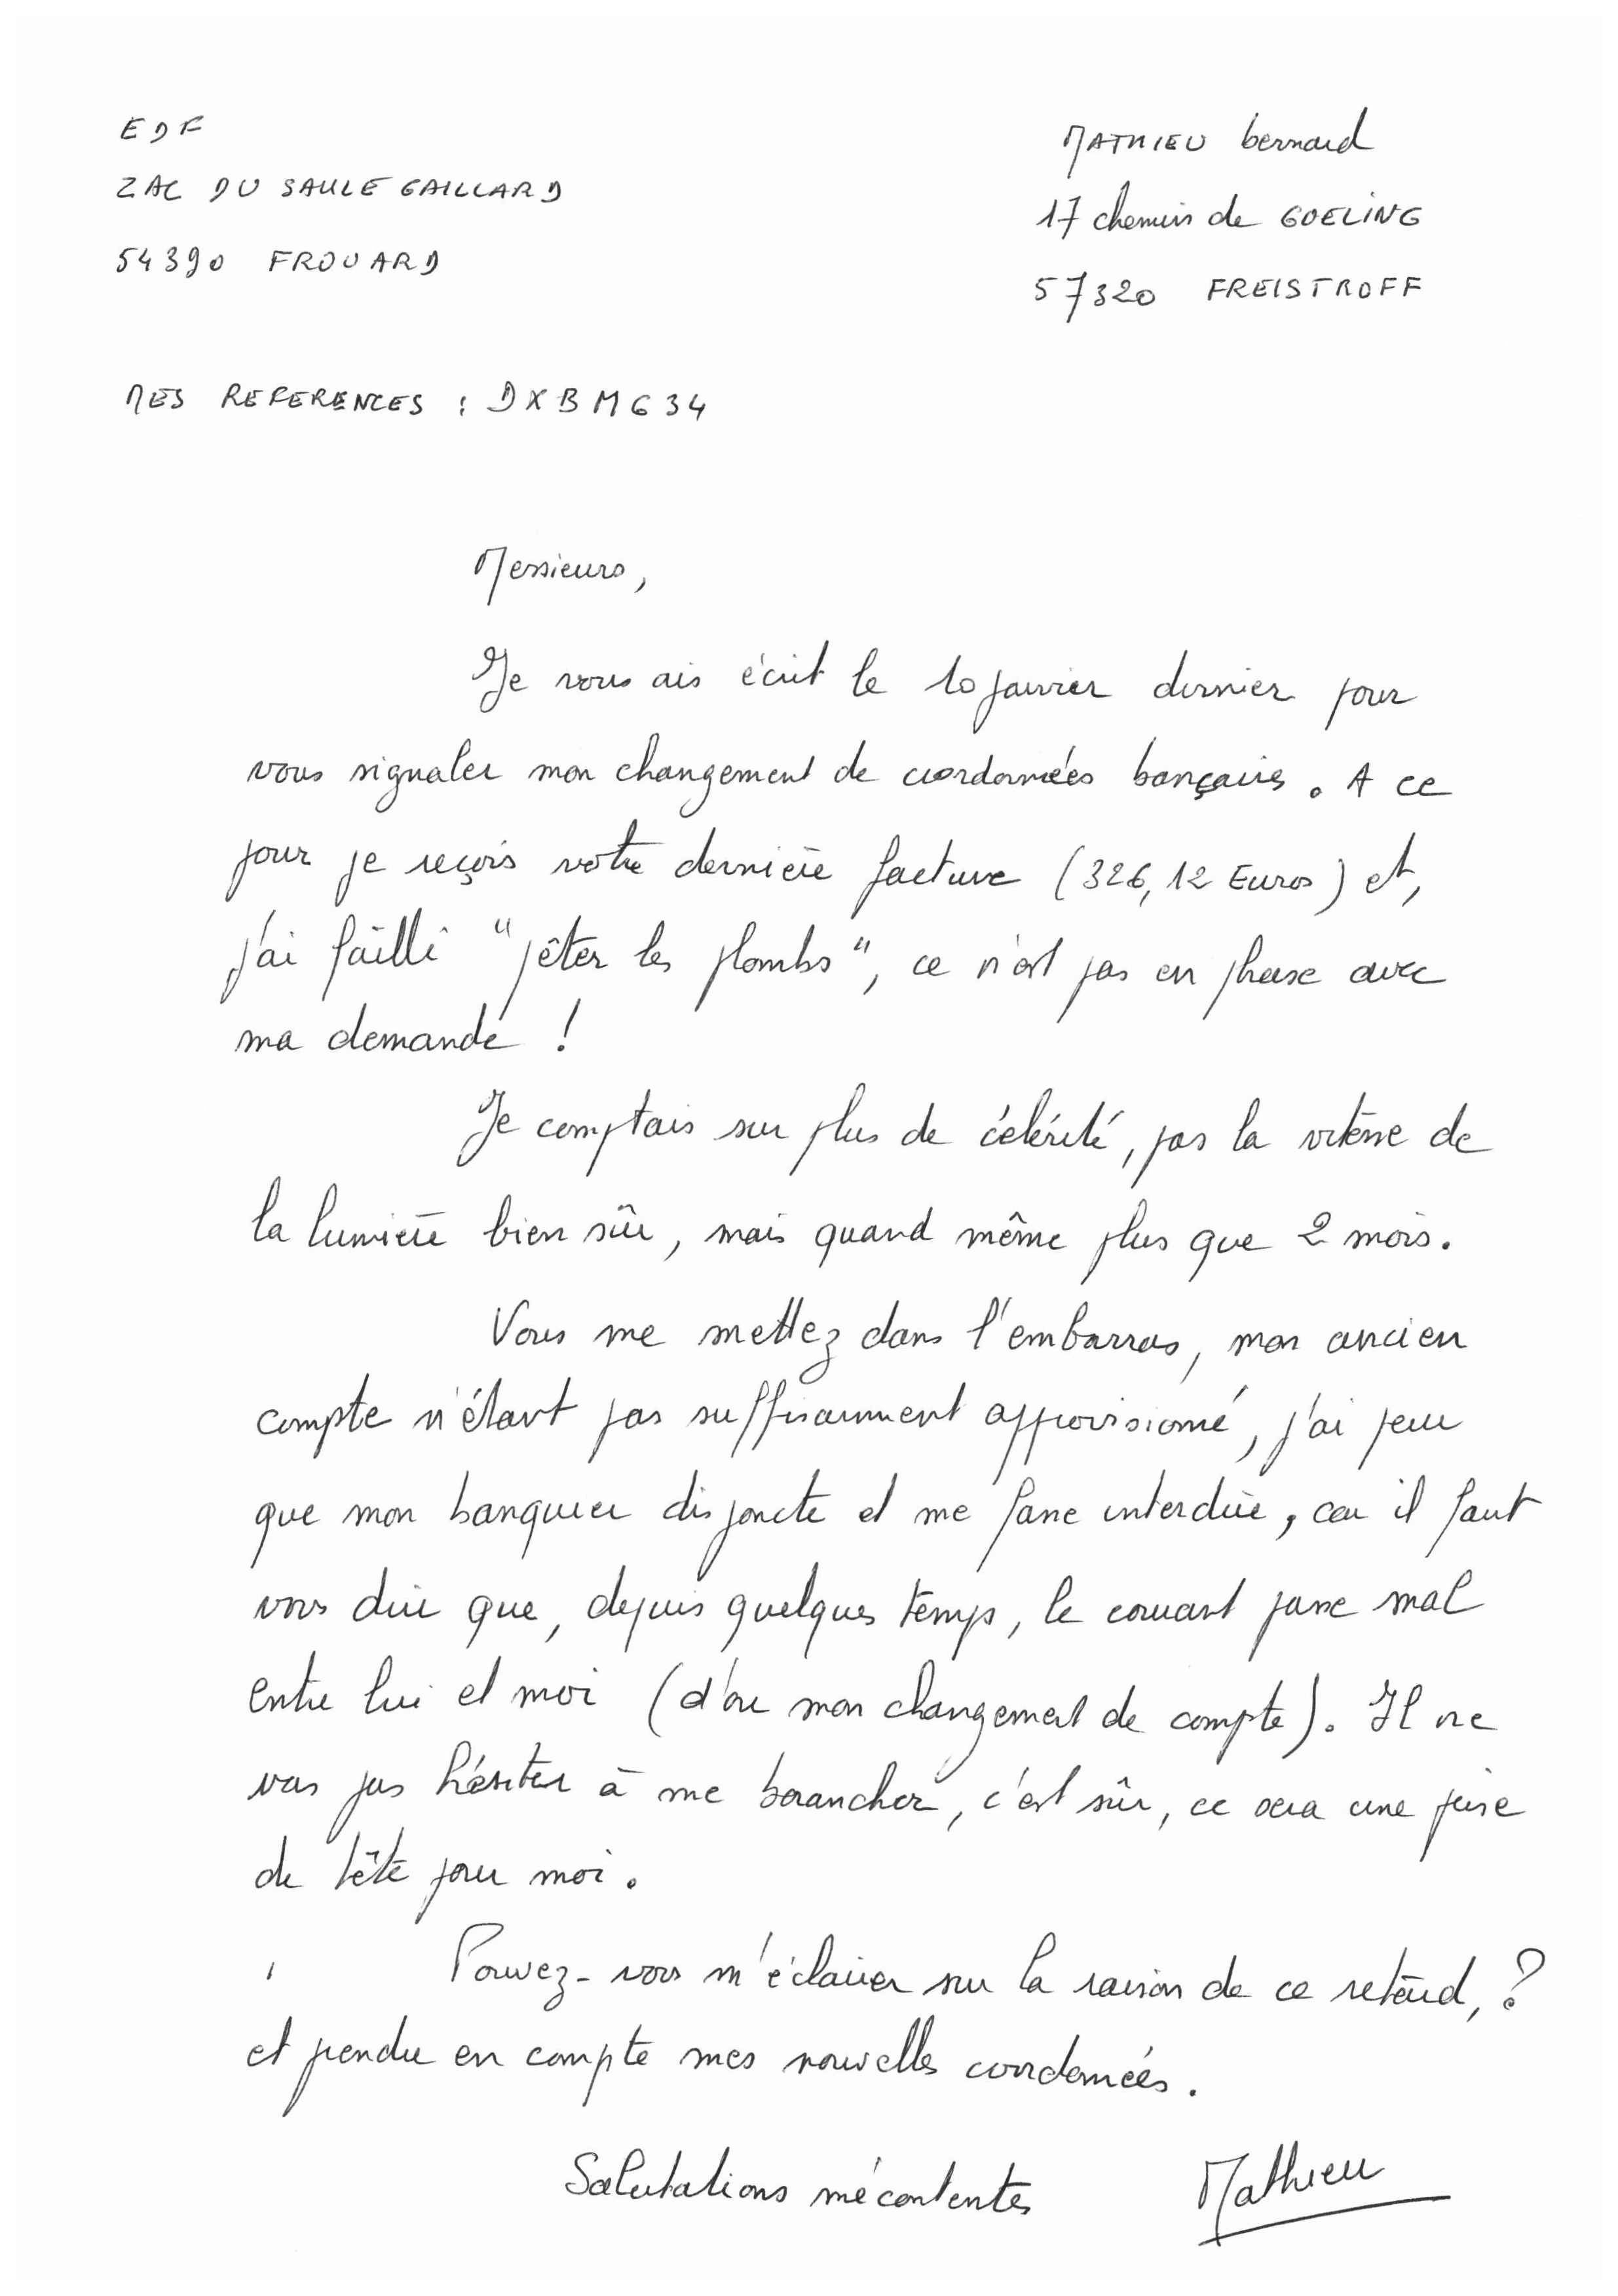 EDF
ZAC DU SAULE GAILLARD
54390 FROUARD
MATHIEU bernard
17 chemin de GOELING
57320 FREISTROFF
MES REFERENCES : DXBMG34
Messieurs,
Je vous ais écrit le 10 janvier dernier pour
vous signaler mon changement de coordonnées bançaires. A ce
jour je reçois votre dernière facture (326,12 Euros) et,
j'ai failli "pêter les plombs", ce n'est pas en phase avec
ma demande !
Je comptais sur plus de célérité, pas la vitesse de
la lumière bien sûr, mais quand même plus que 2 mois.
Vous me mettez dans l'embarras, mon ancien
compte n'étant pas suffisamment approvisionné, j'ai peur
que mon banquier disjoncte et me fasse interdire, car il faut
vous dire que, depuis quelques temps, le courant passe mal
entre lui et moi (d'ou mon changement de compte). Il ne
vas pas hésiter à me brancher, c'est sûr, ce sera une prise
de tête pour moi.
Pouvez-vous m'éclairer sur la raison de ce retard, ?
et prendre en compte mes nouvelles coordonnées.
Salutations mécontentes
Mathieu